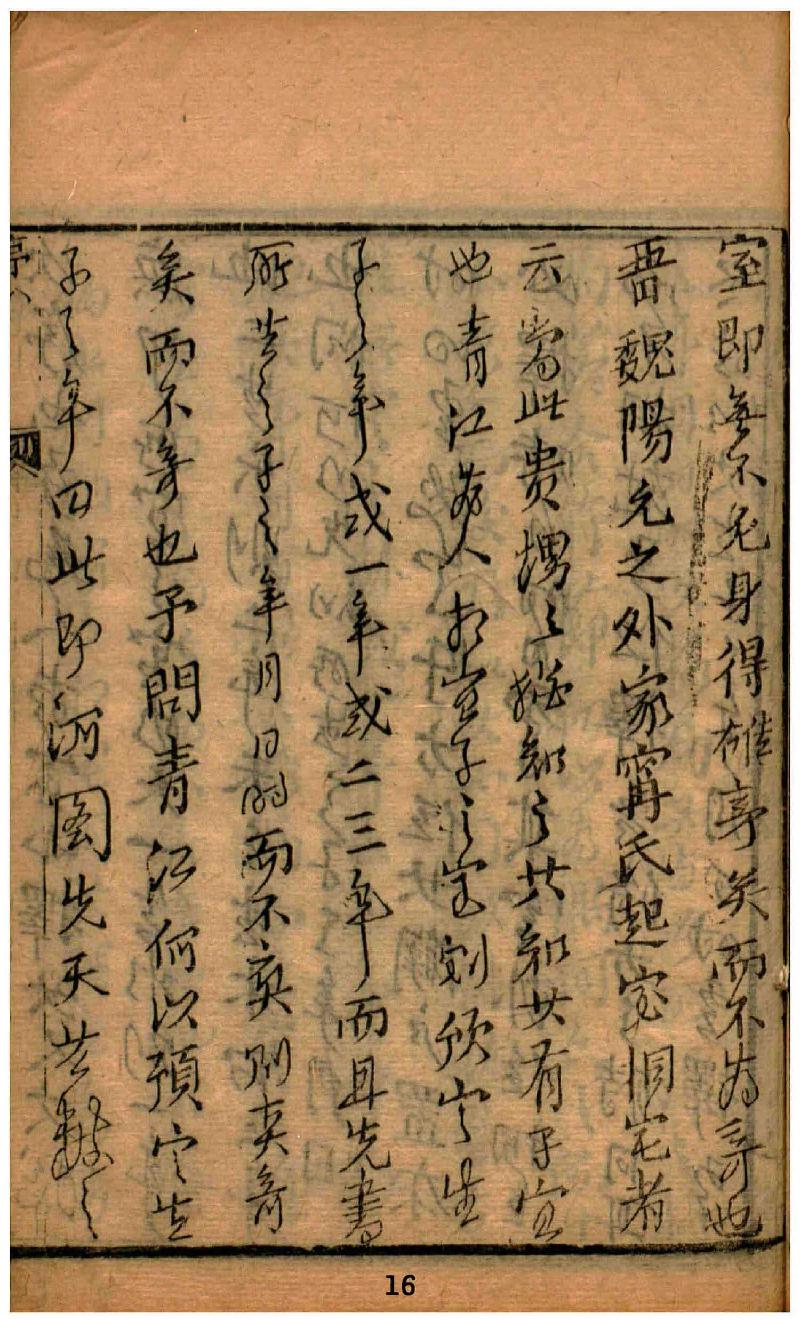 室即無不免身得雄亭矣而不為奇也
晋魏陽元之外家甯氏起宅相宅者
云當出貴甥之摠知之共知其有子宜
也青江為人相宜子之宅刻預定生
子之年或一年或二三年而且先書
所生之子之年月日時而不爽則真奇
矣而不奇也予問青江何以預定生
子之年曰此即河圖先天生數之
序
四
16